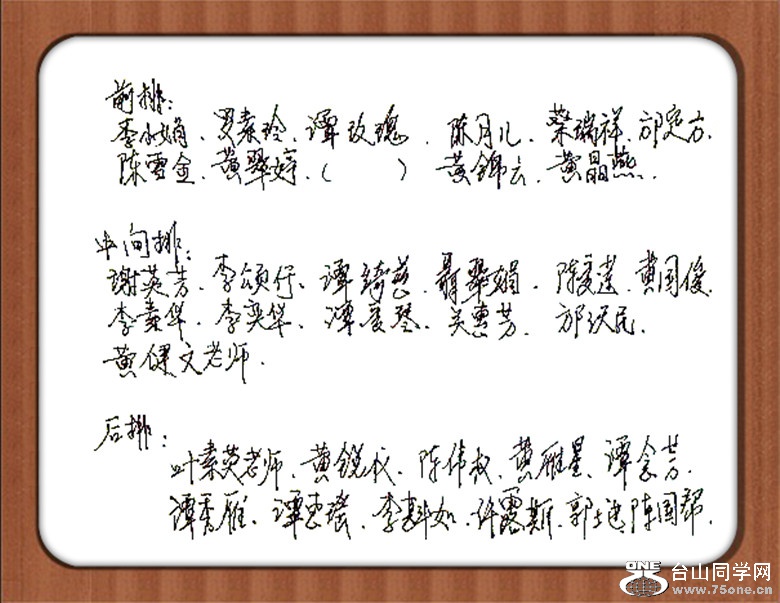 前排:
李小娟、罗素玲、谭玫瑰、陈月儿、荣瑞祥、邝定方、
陈雪金、黄翠婷、( ) 黄錦云、黄晶燕.
中间排:
谢英芳、李颂仔、谭绮慈、聶翠娟、陈 莲、黄国俊、
李素华、李奕华、谭爱琴、吴惠芳、邝 民、
黄健文老师.
后排:
叶素英老师、黄锐 、陈伟权、黄雁星、谭念芳.
谭秀雁、谭惠 、李 如、许露斯、郭 、陈国邦.
ONE
台山同学网
www.75one.cn